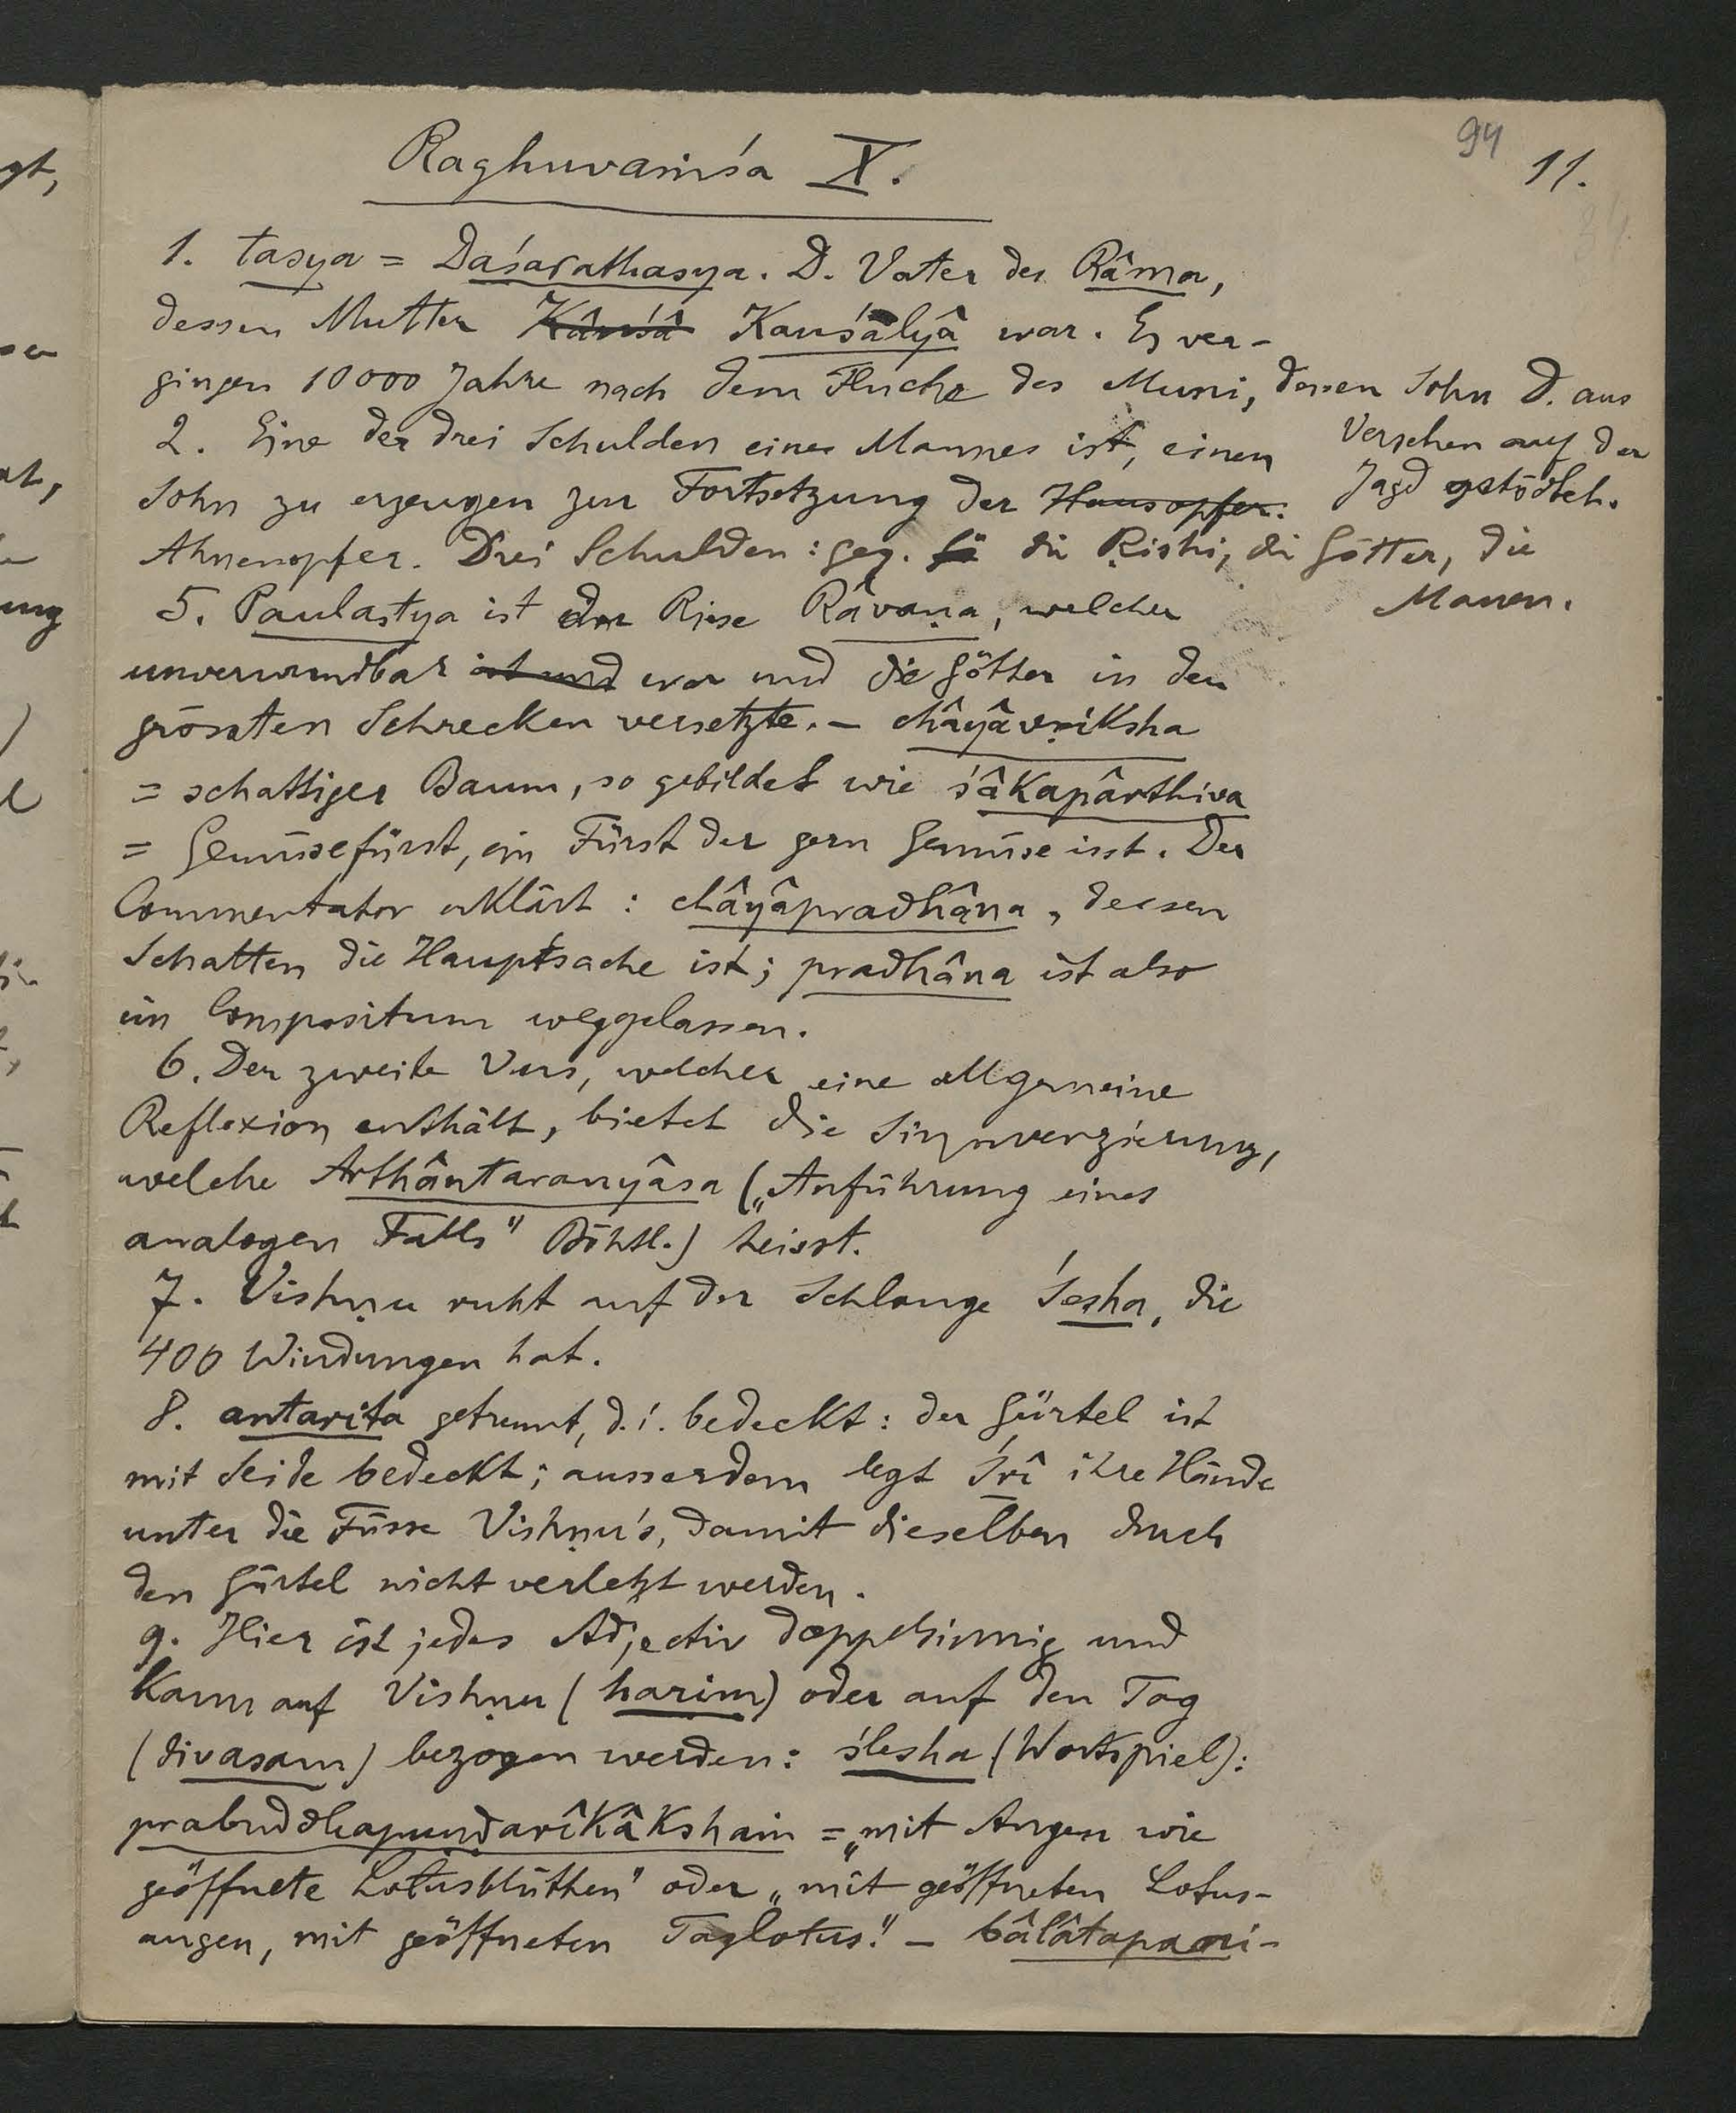 94
11.
Raghuvaṁśa X.
1. tasya = Daśarathasya. D. Vater des Râma,
dessen Mutter Kâuśâ Kauśalyâ war. Es ver-
gingen 10000 Jahre nach dem Fluche des Muni, dessen Sohn D. aus
Versehen auf der
Jagd getödtet.
2. Eine der drei Schulden eines Mannes ist, einen
Sohn zu erzeugen zur Fortsetzung der Hausopfer.
Ahnenopfer. Drei Schulden: geg. die Ṛishi, die Götter, die
Manen.
5. Paulastya ist der Riese Râvaṇa, welcher
unverwundbar ist und war und die Götter in den
grössten Schrecken versetzte. – châyâvṛiksha
= schattiger Baum, so gebildet wie śâkapârthiva
= Gemüsefürst, ein Fürst der gern Gemüse isst. Der
Commentator erklärt: châyâpradhâna, dessen
Schatten die Hauptsache ist; pradhâna ist also
im Compositum weggelassen.
6. Der zweite Vers, welcher eine allgemeine
Reflexion enthält, bietet die Sinnverzierung,
welche Arthântaranyâsa („Anführung eines
analogen Falls" Böhtl.) heisst.
7. Vishṇu ruht auf der Schlange Śesha, die
400 Windungen hat.
8. antarita getrennt, d.i. bedeckt: der Gürtel ist
mit Seide bedeckt; ausserdem legt Śrî ihre Hände
unter die Füsse Vishṇu's, damit dieselben durch
den Gürtel nicht verletzt werden.
9. Hier ist jedes Adjectiv doppelsinnig und
kann auf Vishṇu (harim) oder auf den Tag
(divasam) bezogen werden: ślesha (Wortspiel):
prabuddhapuṇḍarîkâkshaṁ = „mit Augen wie
geöffnete Lotusblüthen" oder „mit geöffneten Lotus-
augen, mit geöffneten Taglotus." – bâlâtapani-